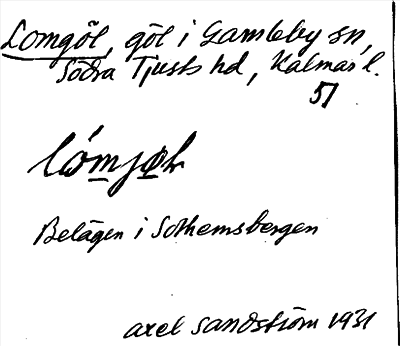 Lomgöl, göl i Gamleby sn,
Södra Tjusts hd, Kalmar l.
51
Belägen i Sothemsbergen
Axel Sandström 1931